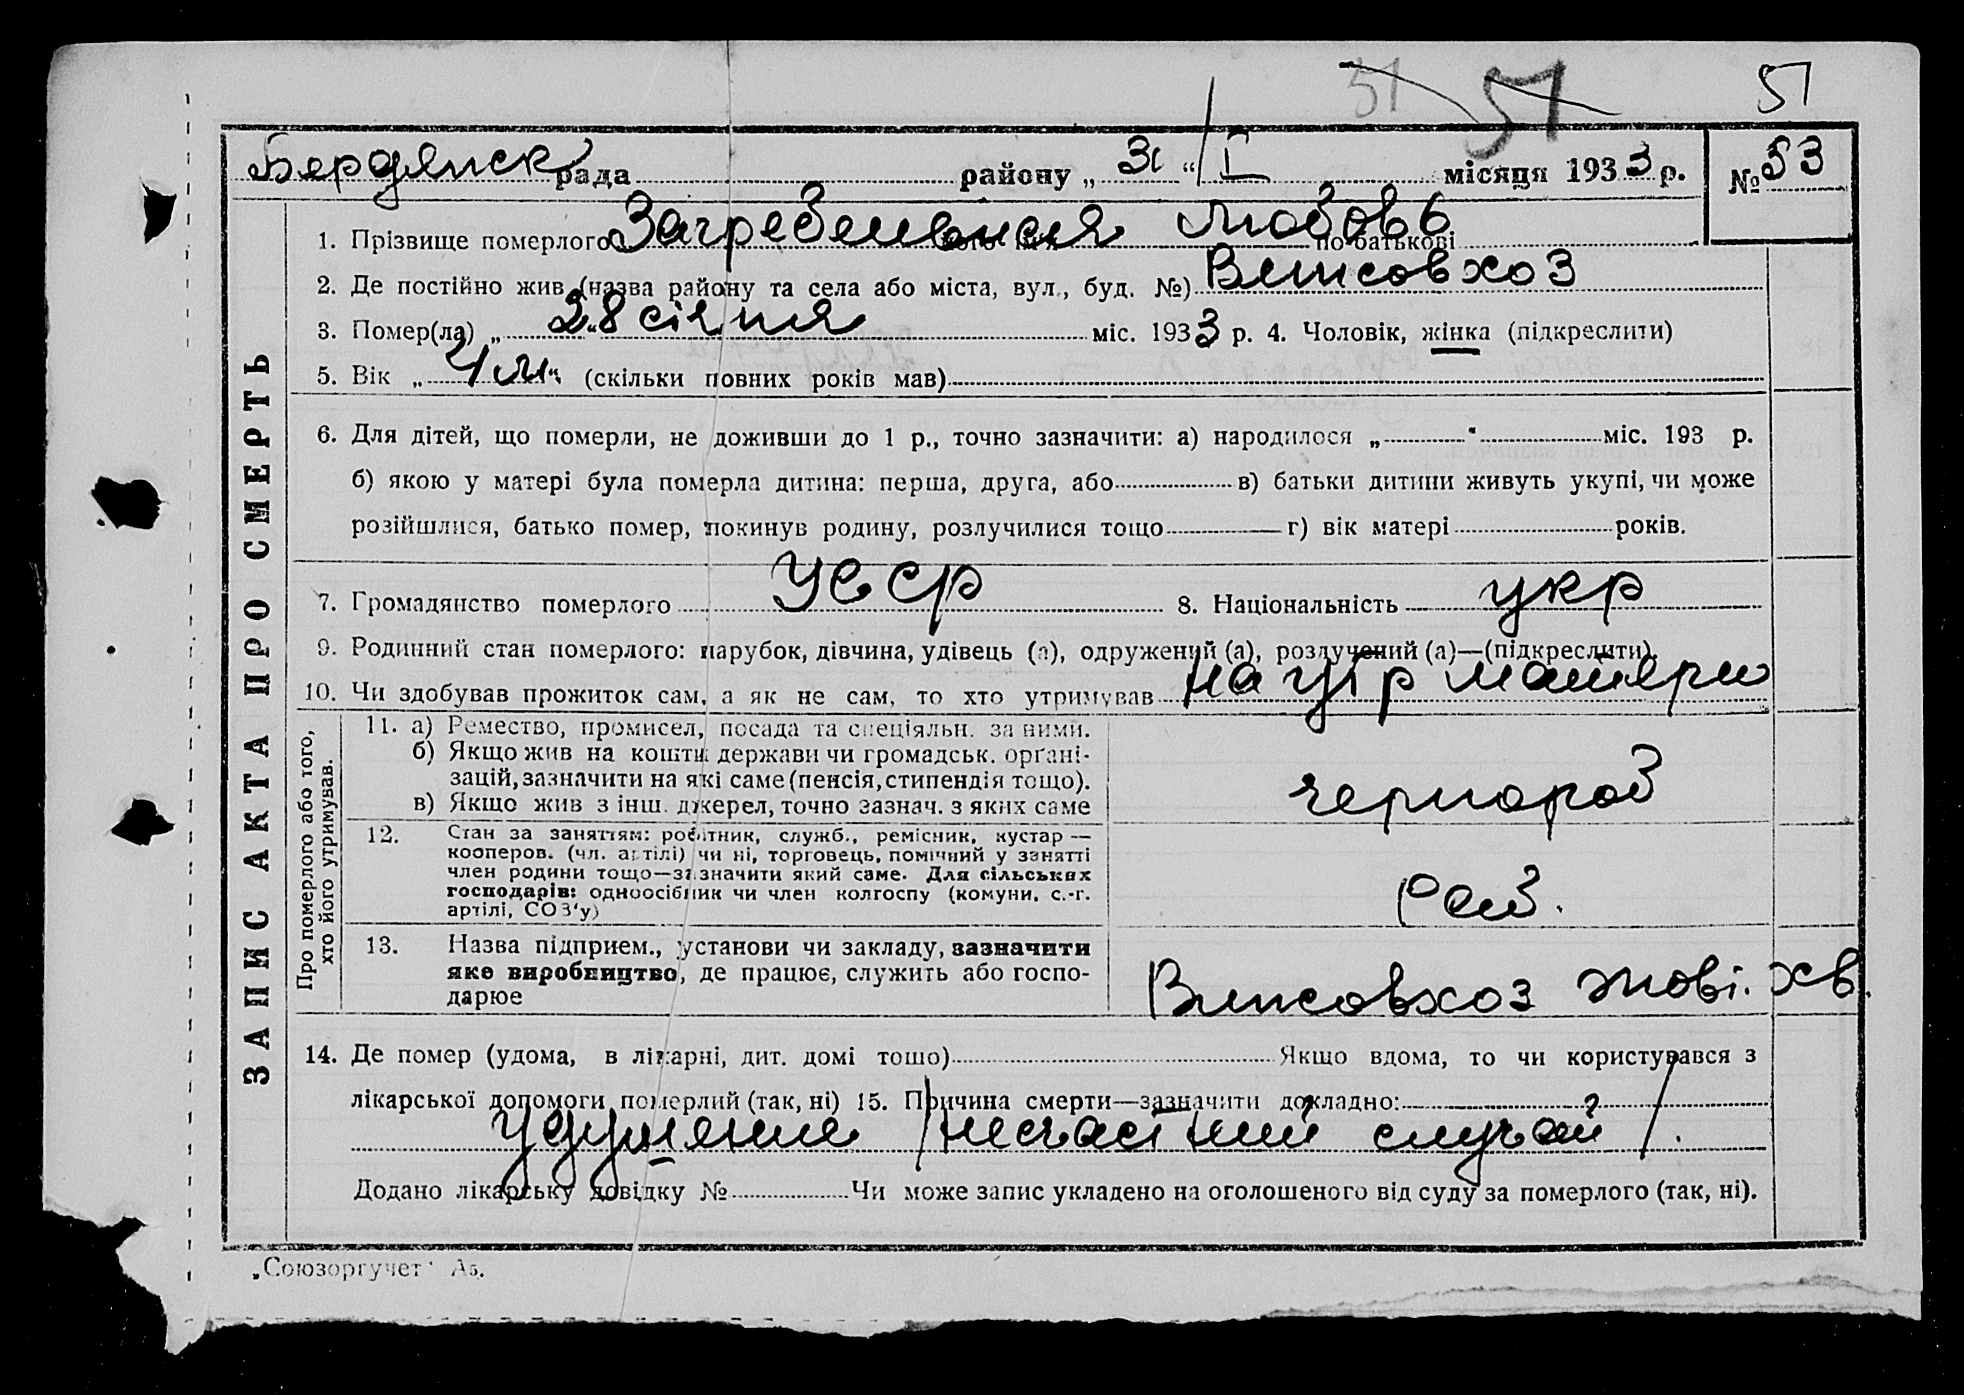 51 51 51
Бердянск рада району „ 31 “ / I місяця 1933 р. № 53
1. Прізвище померлого Загребельная Любовь по батькові
2. Де постійно жив (назва району та села або міста, вул., буд. №) Винсовхоз
3. Помер(ла) „ 28 січня міс. 1933 р. 4. Чоловік, жінка (підкреслити)
5. Вік „ 4 м “ (скільки повних років мав)
6. Для дітей, що померли, не доживши до 1 р., точно зазначити: а) народилося „ “ міс. 193 р.
б) якою у матері була померла дитина: перша, друга, або в) батьки дитини живуть укупі, чи може
розійшлися, батько помер, покинув родину, розлучилися тощо г) вік матері років.
7. Громадянство померлого УССР 8. Національність укр
9. Родинний стан померлого: парубок, дівчина, удівець (а), одружений (а), розлучений (а)—(підкреслити).
10. Чи здобував прожиток сам, а як не сам, то хто утримував на утр матери
ЗАПИС АКТА ПРО СМЕРТЬ
Про померлого або того, хто його утримував.
11. а) Ремество, промисел, посада та спеціяльн. за ними.
б) Якщо жив на кошти держави чи громадськ. орґані-
зацій, зазначити на які саме (пенсія, стипендія тощо).
в) Якщо жив з інш. джерел, точно зазнач. з яких саме
чернораб
12. Стан за заняттям: робітник, служб., ремісник, кустар —
кооперов. (чл. артілі) чи ні, торговець, помічний у занятті
член родини тощо—зазначити який саме. Для сільських
господарів: одноосібник чи член колгоспу (комуни, с.-г.
артілі, СОЗ'у)
раб.
13. Назва підприєм., установи чи закладу, зазначити
яке виробництво, де працює, служить або госпо-
дарює
Винсовхоз Жові. хв.
14. Де помер (удома, в лікарні, дит. домі тощо) Якщо вдома, то чи користувався з
лікарської допомоги померлий (так, ні) 15. Причина смерти—зазначити докладно:
удушение / несчастний случай /.
Додано лікарську довідку № Чи може запис укладено на оголошеного від суду за померлого (так, ні).
„Союзоргучет“ А5.